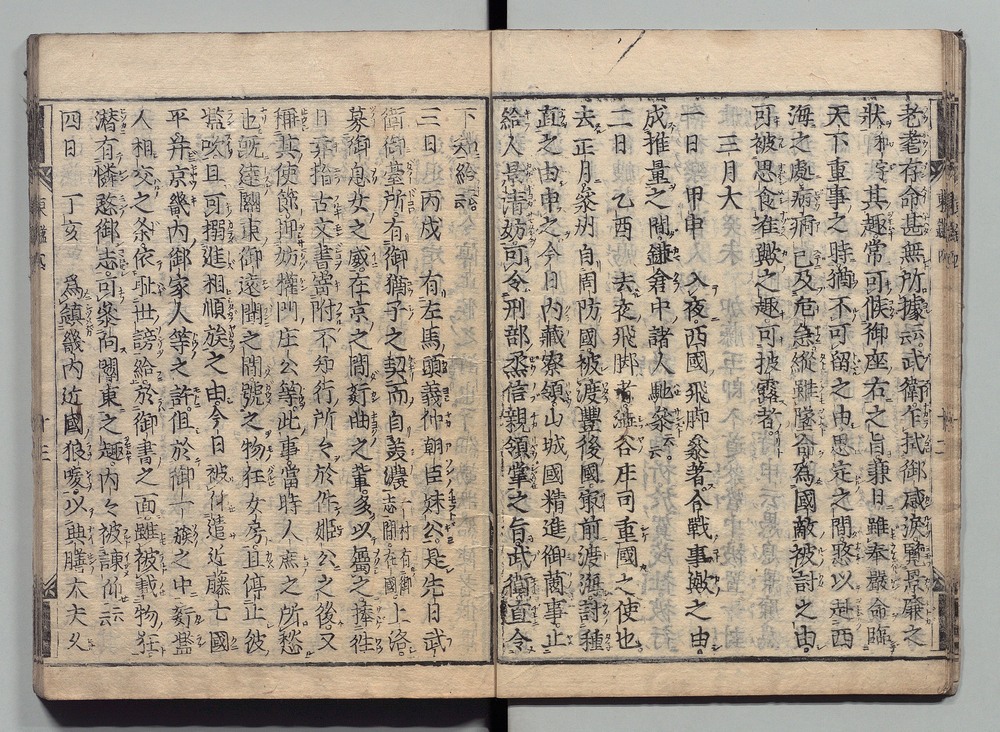 老耄存命甚無所據云云武衛乍拭御感涙覽景廉之
狀邪許其趣常可候御座右之旨兼日雖奉嚴命臨
天下重事之時猶不可留之由思定之間憖以赴西
海之處病痾已及危急縱雖墜命爲國敵被討之由
可被思食准歟之趣可披露者
三月大
一日 甲申 入夜西國飛脚參著合戰事歟之由
成推量之間鎌倉中諸人馳參云云
二日 乙酉 去夜飛脚者澁谷庄司重國之使也
去正月參州自周防國被渡豐後國事前渡海討種
直之由申之今日内藏寮領山城國精進御薗事止
給人景清妨可令刑部丞信親領掌之旨武衛直令
下知給云云
三日 丙戌 有左馬頭義仲朝臣妹公是先日武
衛御臺所有御猶子之契而自美濃 上洛
募御息女之威在京之間姧曲之輩多以屬之捧往
日弃捨古文書寄附不知行所々於件姫公之後又
稱其使節抑妨權門庄公等此事當時人庶之所愁
也既達關東御遠聞之間號之物狂女房且停止彼
濫吹且可撰進相順族之由今日被仰遣近藤七國
平幷京畿内御家人等之許但於御一族之中姧濫
人相交之条依耻世謗給於御書之面雖被載物狂
潜有憐愍御志可參向關東之趣内々被諌仰云云
四日 丁亥 爲鎮畿内近國狼唳以典膳大夫久
東鑑
十二
十三